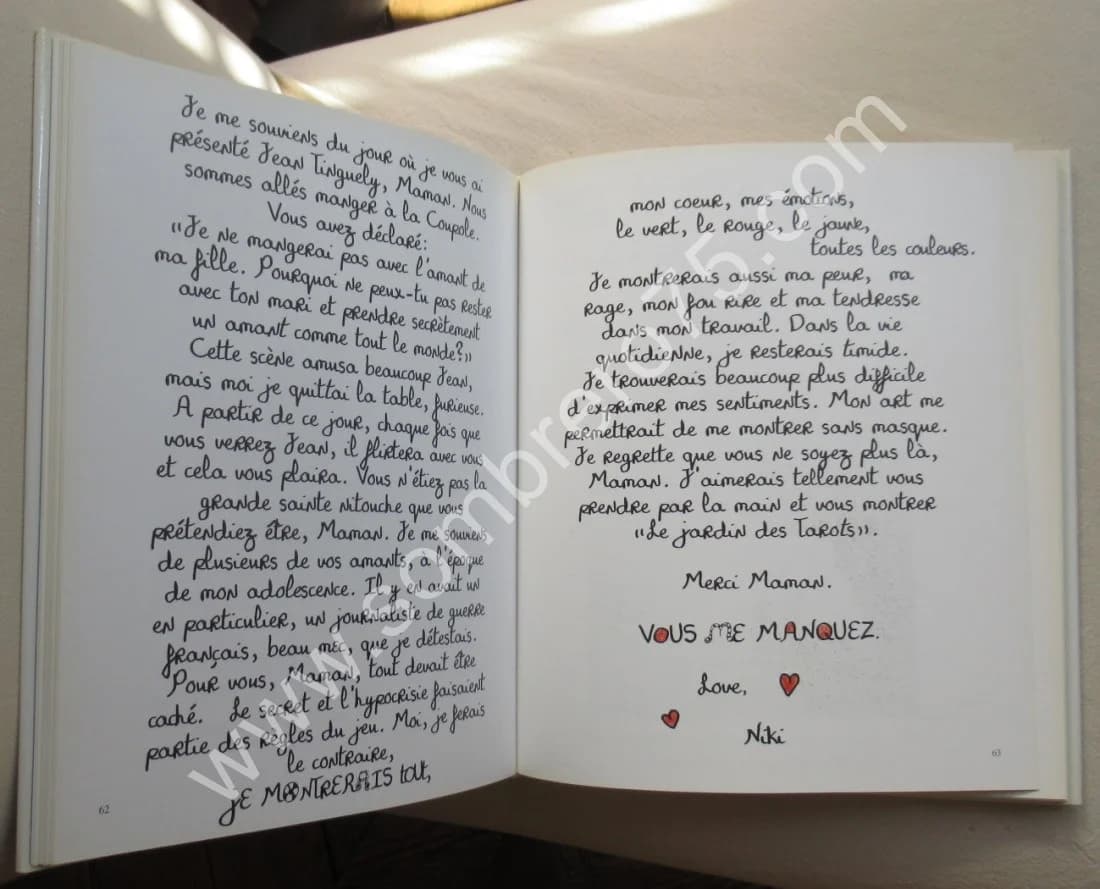 Je me souviens du jour où je vous ai
présenté Jean Tinguely, Maman. Nous
sommes allés manger à la Coupole.
Vous avez déclaré:
"Je ne mangerai pas avec l'amant de
ma fille. Pourquoi ne peux-tu pas rester
avec ton mari et prendre secrètement
un amant comme tout le monde?"
Cette scène amusa beaucoup Jean,
mais moi je quittai la table, furieuse.
A partir de ce jour, chaque fois que
vous verrez Jean, il flirtera avec vous
et cela vous plaira. Vous n'étiez pas la
grande sainte nitouche que vous
prétendiez être, Maman. Je me souviens
de plusieurs de vos amants, à l'époque
de mon adolescence. Il y en avait un
en particulier, un journaliste de guerre
français, beau mec, que je détestais.
Pour vous, Maman, tout devait être
caché. Le secret et l'hypocrisie faisaient
partie des règles du jeu. Moi, je ferais
le contraire,
JE MONTRERAIS tout,
62
mon coeur, mes émotions,
le vert, le rouge, le jaune,
toutes les couleurs.
Je montrerais aussi ma peur, ma
rage, mon fou rire et ma tendresse
dans mon travail. Dans la vie
quotidienne, je resterais timide.
Je trouverais beaucoup plus difficile
d'exprimer mes sentiments. Mon art me
permettrait de me montrer sans masque.
Je regrette que vous ne soyez plus là,
Maman. J'aimerais tellement vous
prendre par la main et vous montrer
"Le jardin des Tarots".
Merci Maman.
VOUS ME MANQUEZ.
Love,
Niki
63
www.sombrero75.com